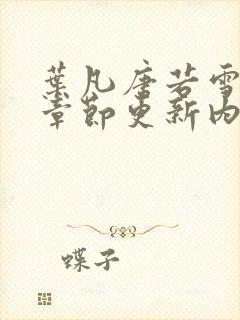 葉凡唐若雪
章節更新內
蝶子